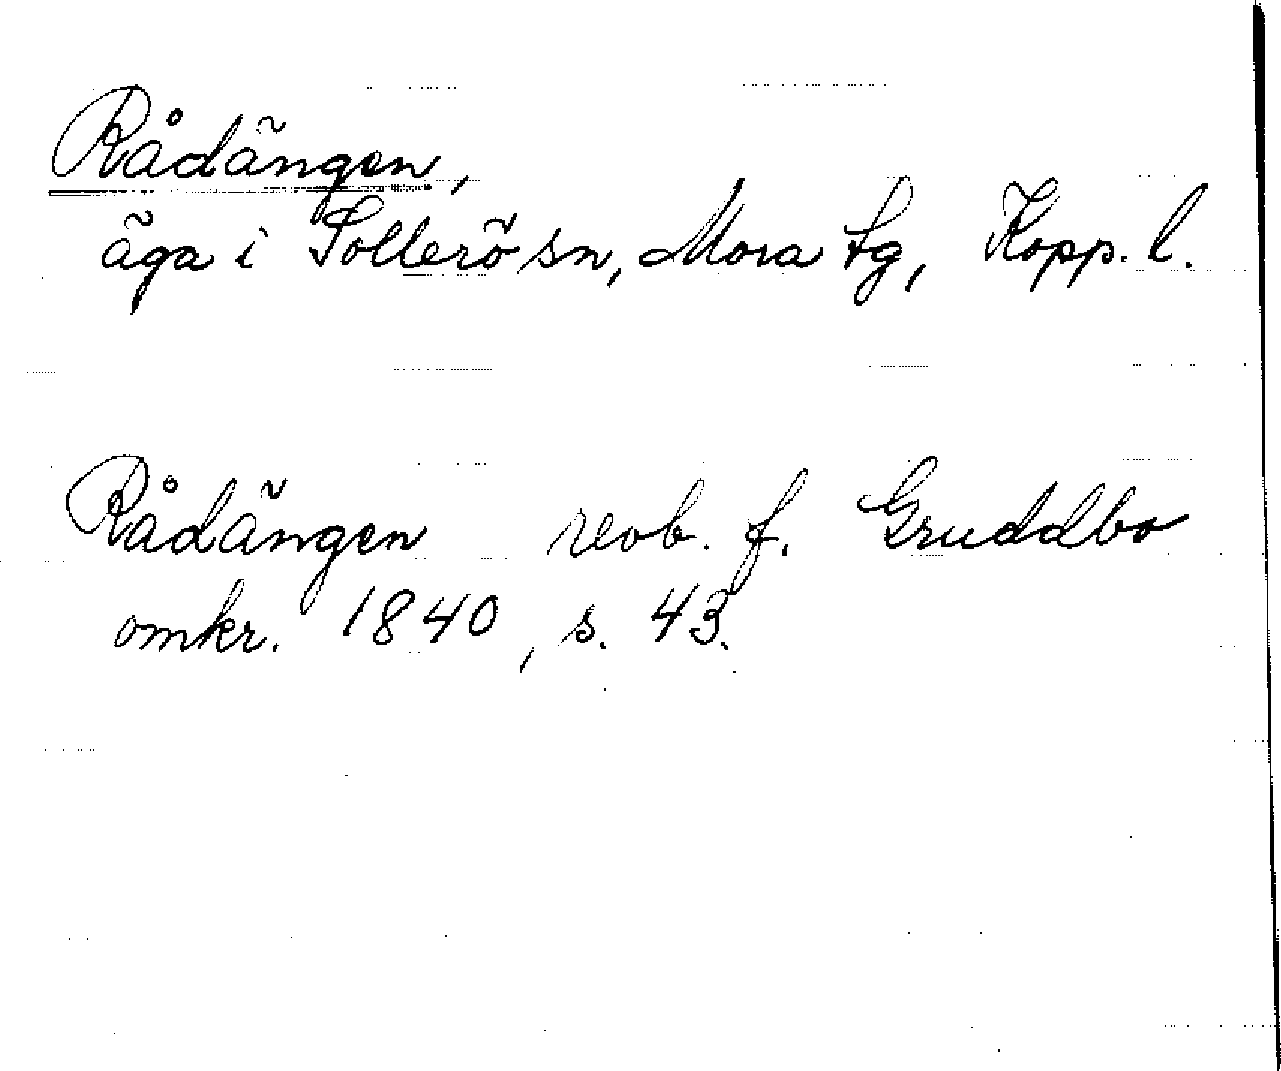 Rådängen,
äga i Sollerö sn, Mora tg, Kopp. l.
Rådängen revb. f. Gruddbo
omkr. 1840, s. 43.